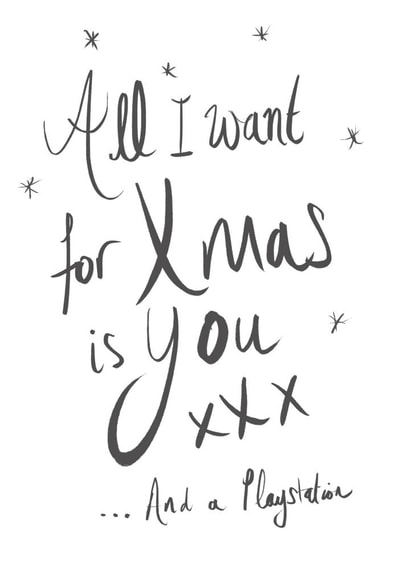 All I want
for Xmas
is you
xxx
... And a Playstation